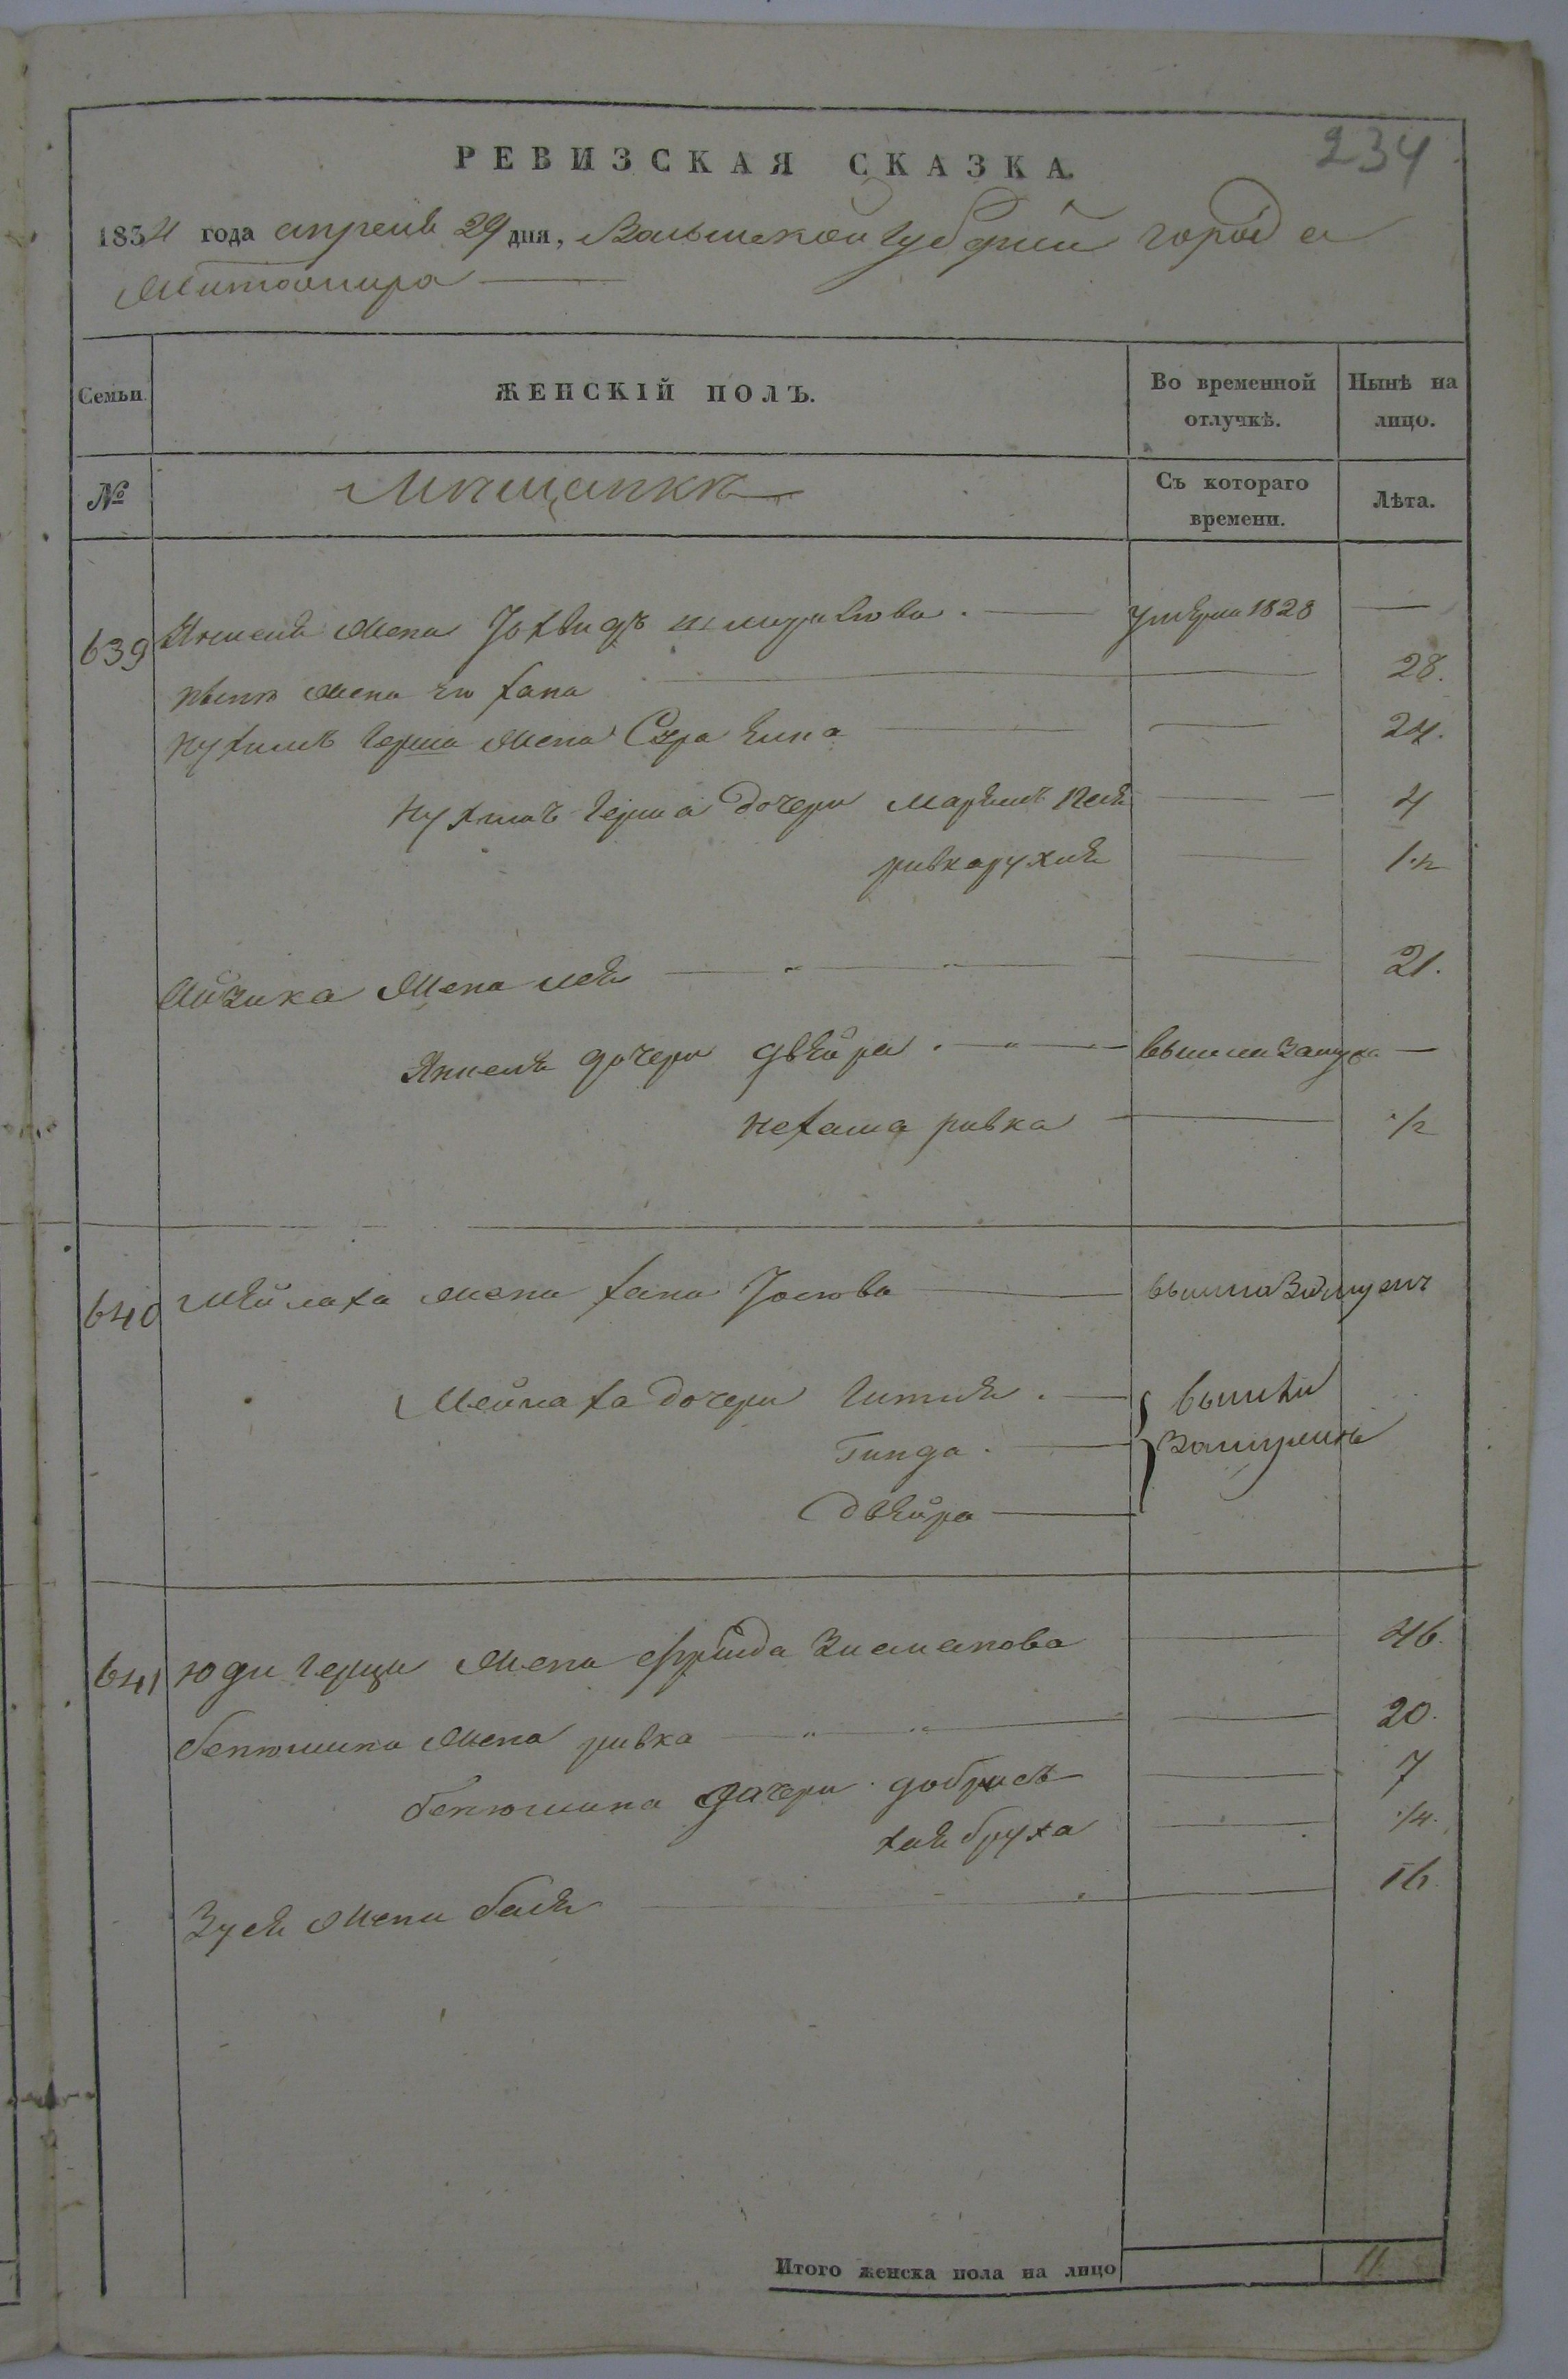 234
РЕВИЗСКАЯ СКАЗКА.
1834 года апреля 29 дня, Волынской губернии города
Житомира
Семьи ЖЕНСКІЙ ПОЛЪ. Во временной отлучкѣ. Нынѣ на лицо.
№ Мѣщанки Съ котораго времени. Лѣта.
639 Янкеля жена Йохвидъ умерла 1828 —
жена его хана — 28.
Нухимъ Герша жена Сура — 24.
Нухимъ Герша дочери — 4
ривка рухля — 1 1/2
Айзика жена лея — 21.
Янкеля дочери двейра вышла замуж —
нехама ривка — 1/2
640 Мейлаха жена хана Йосіова вышла Замужъ
Мейлаха дочери Гитля вышли
Гинда Замужъ
двейра
641 Юди Герци жена фрейда Зисманова — 46.
бенюмина жена ривка — 20.
бенюмина дочери добрисъ — 7
хая бруха — 1/4.
Зуся жена бася — 16
Итого женска пола на лицо 11